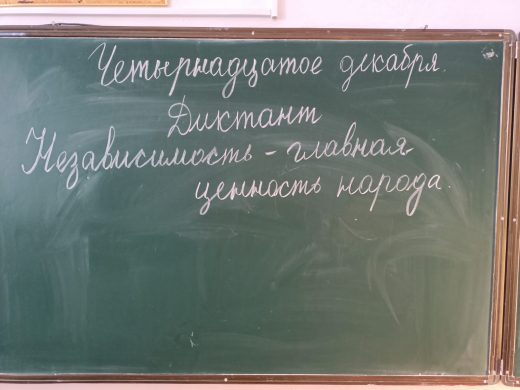 Четырнадцатое декабря.
Диктант
Независимость - главная
ценность народа.